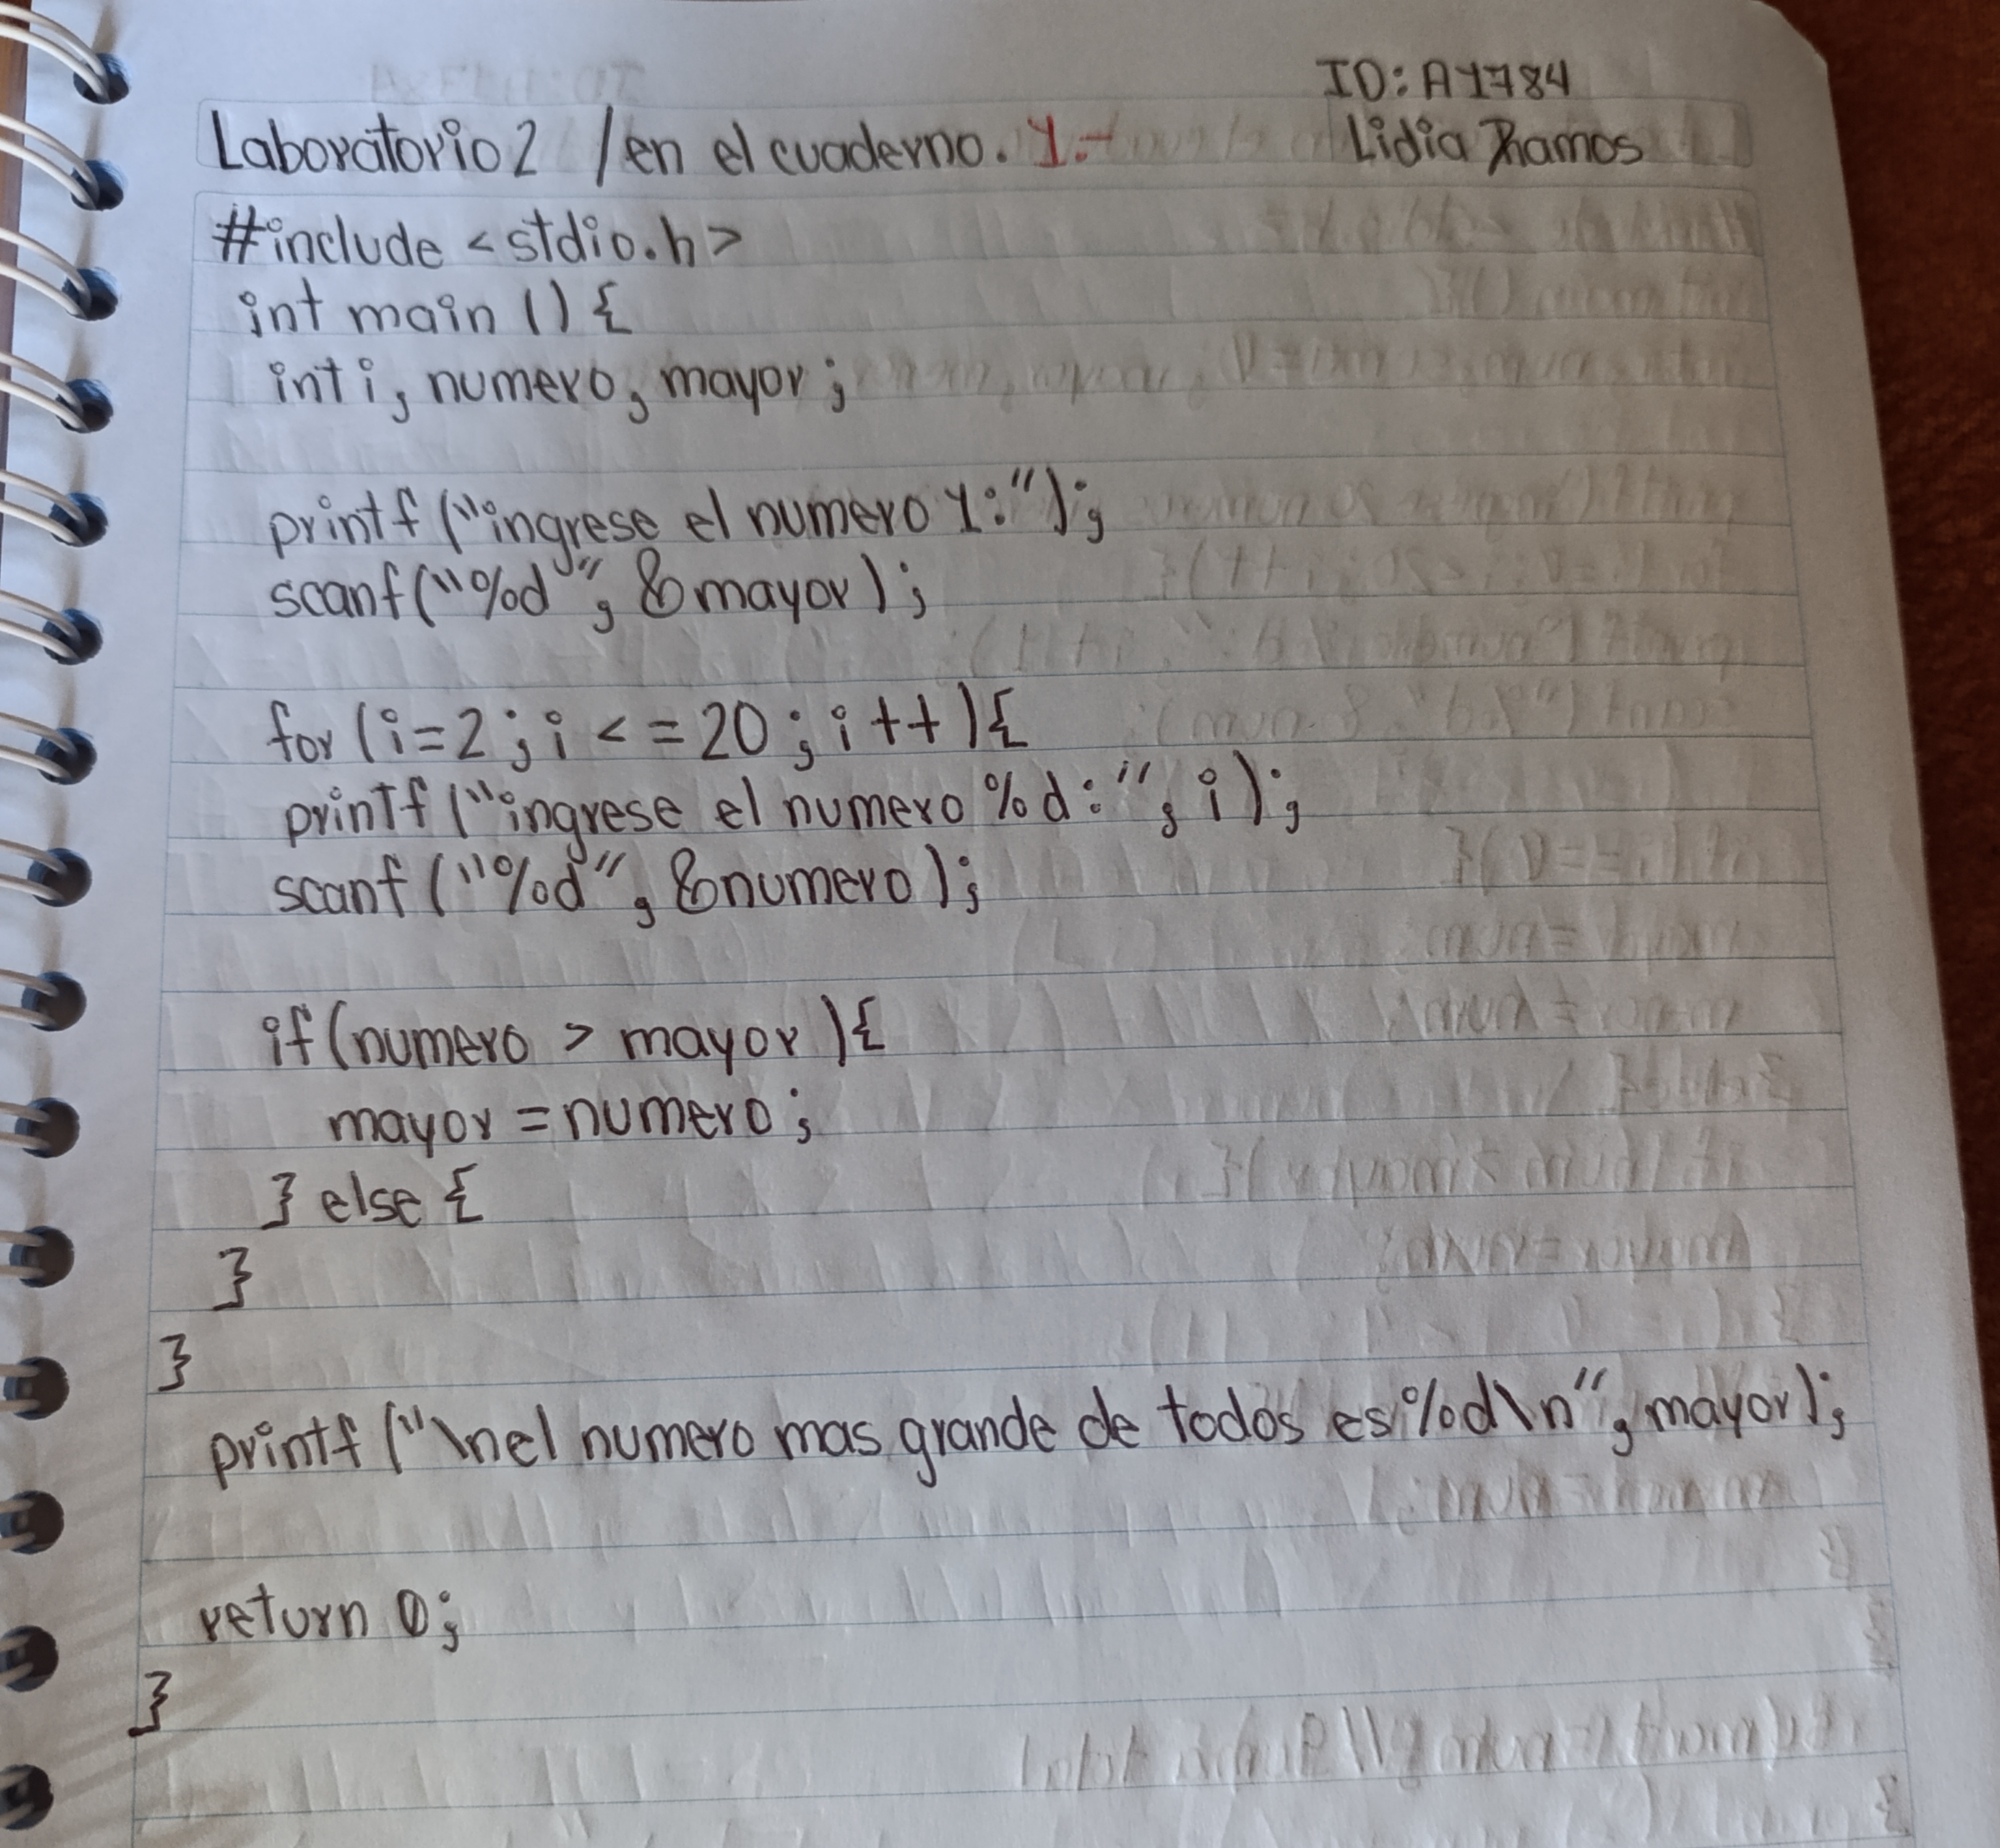 ID: A1784
Laboratorio 2 / en el cuaderno. 1.- Lidia Ramos
#include <stdio.h>
int main () {
int i, numero, mayor;
printf ("ingrese el numero 1:");
scanf ("%d", &mayor);
for (i=2; i <= 20; i++){
printf ("ingrese el numero %d:", i);
scanf ("%d", &numero);
if (numero > mayor ){
mayor = numero;
} else {
}
}
printf ("\nel numero mas grande de todos es %d\n", mayor);
return 0;
}